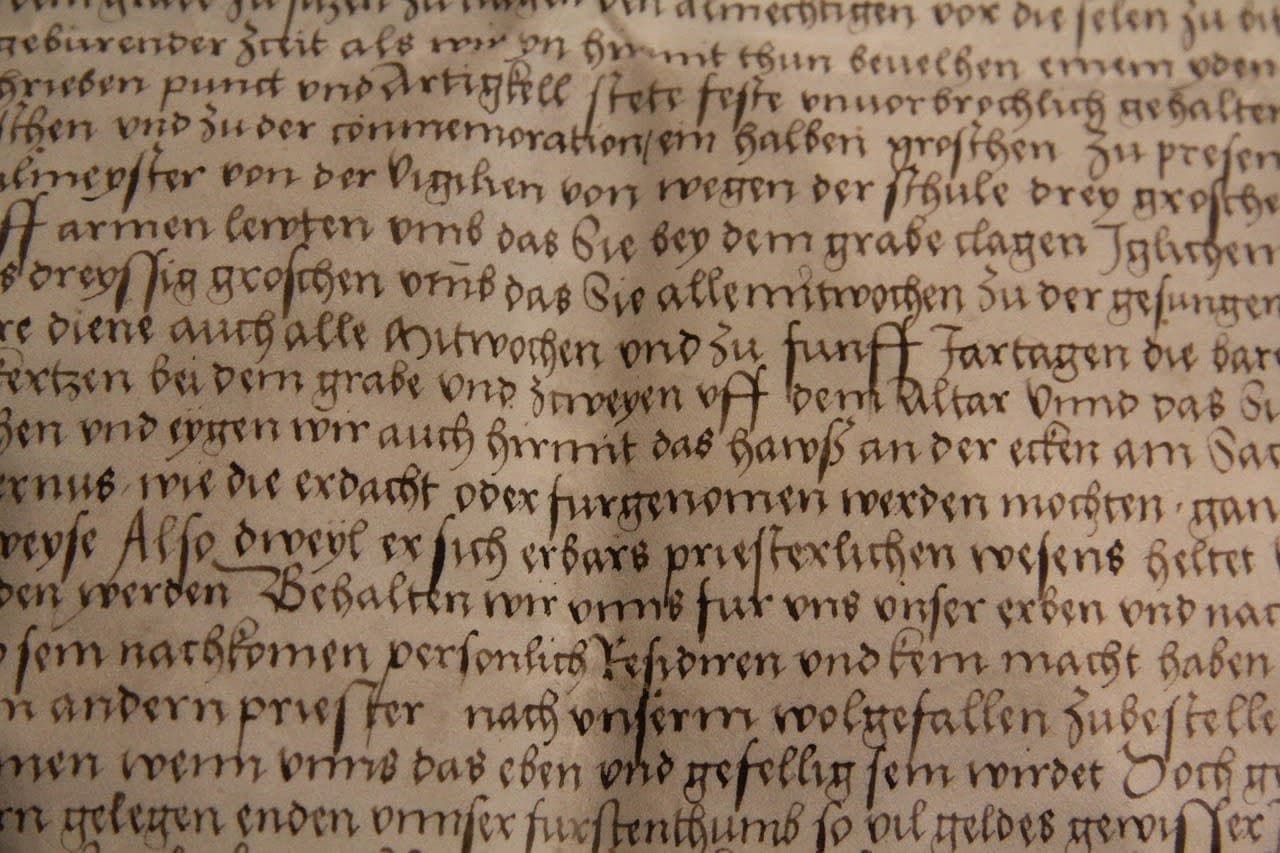 zu sitzen zu den almechtigen vor die selen zu
geburender zceit als wir yn hirmit thun beuelhen einem yden
hrieben punct vnd Artigkell stete feste vnuorbrochlich gehalten
schen vnd zu der commemoration/ ein halben groschen zu presen
lmeyster von der vigilien von wegen der schule drey grosche
ff armen lewten vmb das Sie bey dem grabe clagen Iglichem
s dreyssig groschen vmb das Sie alle mitwochen zu der gesungen
re diene auch alle Mitwochen vnd zu funff Jartagen die bar
kertzen bei dem grabe vnd zcweyen vff dem Altar Vnnd das Si
hen vnd eygen wir auch hirmit das hawß an der ecken am Sac
ernus wie die erdacht oder furgenomen werden mochten gan
weyse Also dweyl er sich erbars priesterlichen wesens heltet
den werden Behalten wir vnns fur vns vnser erben vnd nac
sein nachkomen personlich Residiren vnd kein macht haben
n andern priester nach vnserm wolgefallen zubestelle
men wenn vnns das eben vnd gefellig sein wirdet Doch ge
rn gelegen enden vnnser furstenthumb so vil geldes gewisser